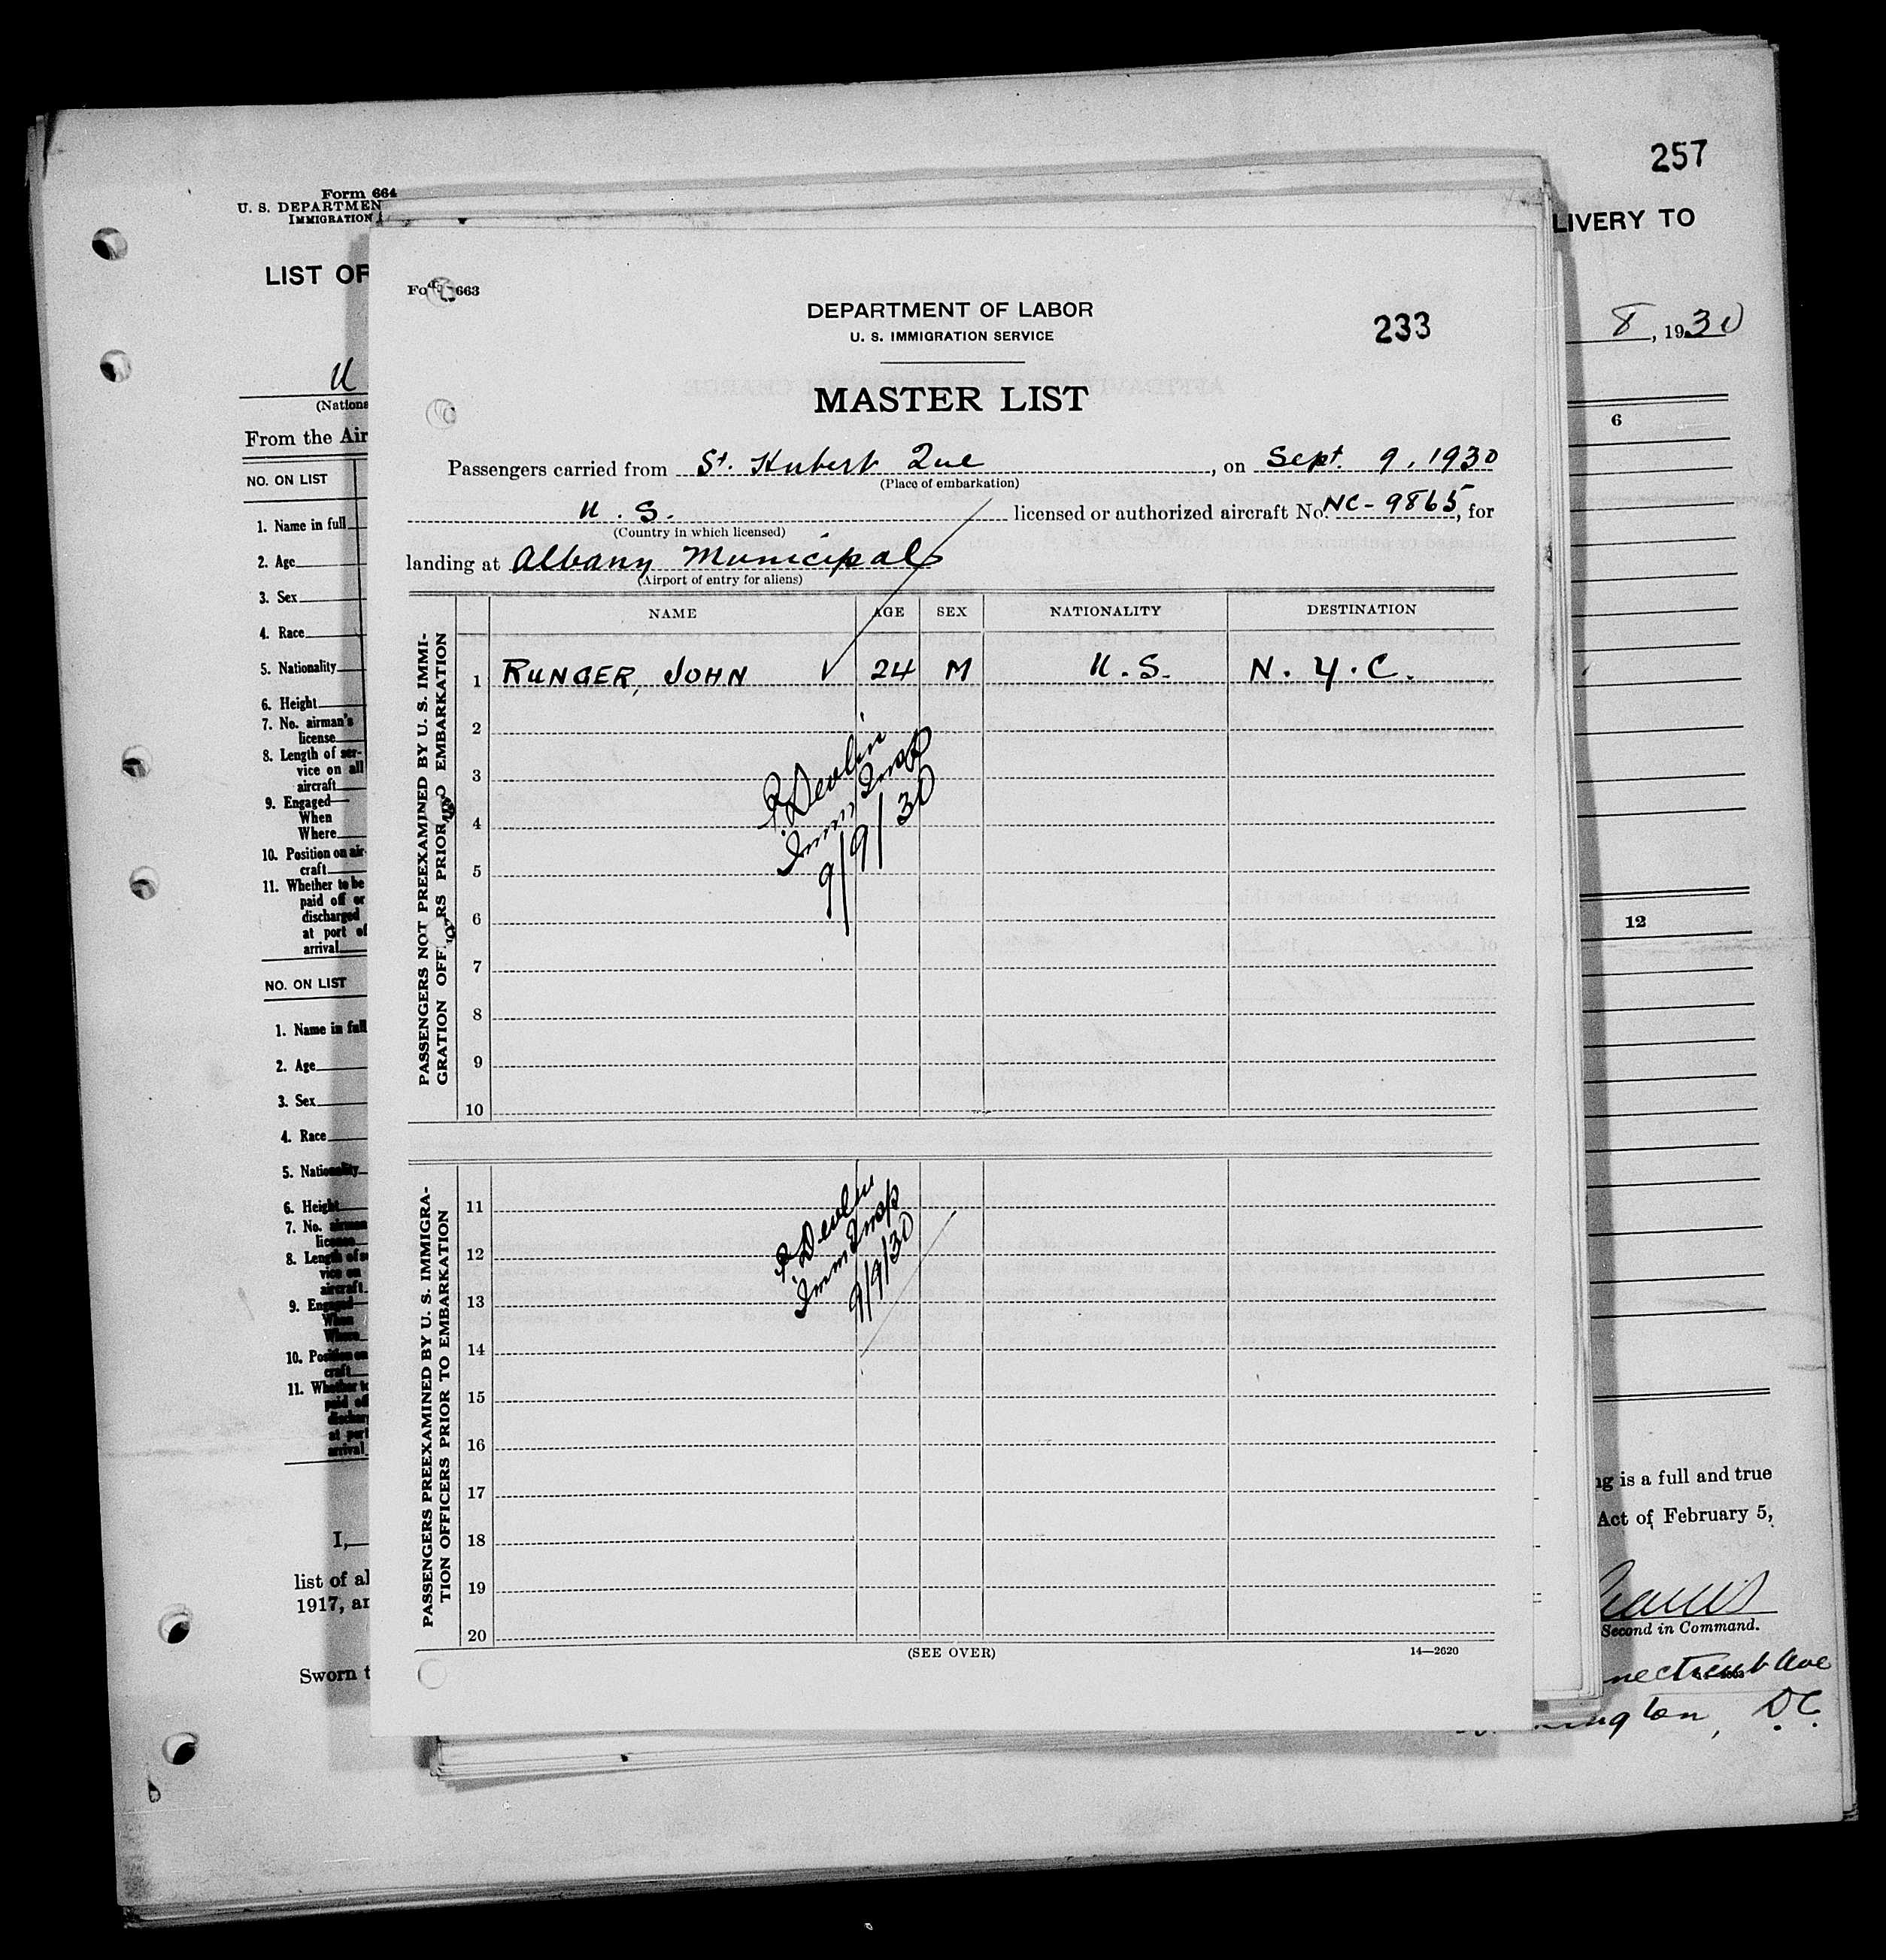 257
Form 664
U. S. DEPARTMEN
IMMIGRATION
LIST OF
LIVERY TO
8, 1930
U
(Nationa
From the Air
NO. ON LIST
6
1. Name in full
2. Age
3. Sex
4. Race
5. Nationality
6. Height
7. No. airman's
license
8. Length of ser-
vice on all
aircraft
9. Engaged—
When
Where
10. Position on air-
craft
11. Whether to be
paid off or
discharged
at port of
arrival
NO. ON LIST
12
1. Name in full
2. Age
3. Sex
4. Race
5. Nationality
6. Height
7. No. airman
license
8. Length of s
vice on
aircraft
9. Engaged
When
Where
10. Position on
craft
11. Whether to
paid off
discharg
at port
arrival
I,
list of al
1917, an
Sworn t
ng is a full and true
Act of February 5,
Second in Command.
necticut Ave
ington, D.C.
663
DEPARTMENT OF LABOR
U. S. IMMIGRATION SERVICE
233
MASTER LIST
Passengers carried from St. Hubert Que, on Sept. 9, 1930
(Place of embarkation)
U. S. licensed or authorized aircraft No. NC-9865, for
(Country in which licensed)
landing at Albany Municipal
(Airport of entry for aliens)
NAME AGE SEX NATIONALITY DESTINATION
PASSENGERS NOT PREEXAMINED BY U. S. IMMI-
GRATION OFF RS PRIOR O EMBARKATION
1 RUNGER, JOHN 24 M U.S. N.Y.C.
2
3
4
5
6
7
8
9
10
P. Devlin
Imm Insp
9/9/30
PASSENGERS PREEXAMINED BY U. S. IMMIGRA-
TION OFFICERS PRIOR TO EMBARKATION
11
12
13
14
15
16
17
18
19
20
P. Devlin
Imm Insp
9/9/30
(SEE OVER)
14—2620